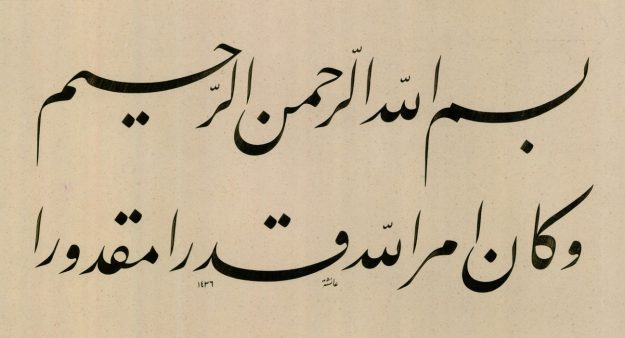 بسم الله الرّحمن الرّحيم
وكان امر الله قدرا مقدورا
عائشة ١٤٣٦